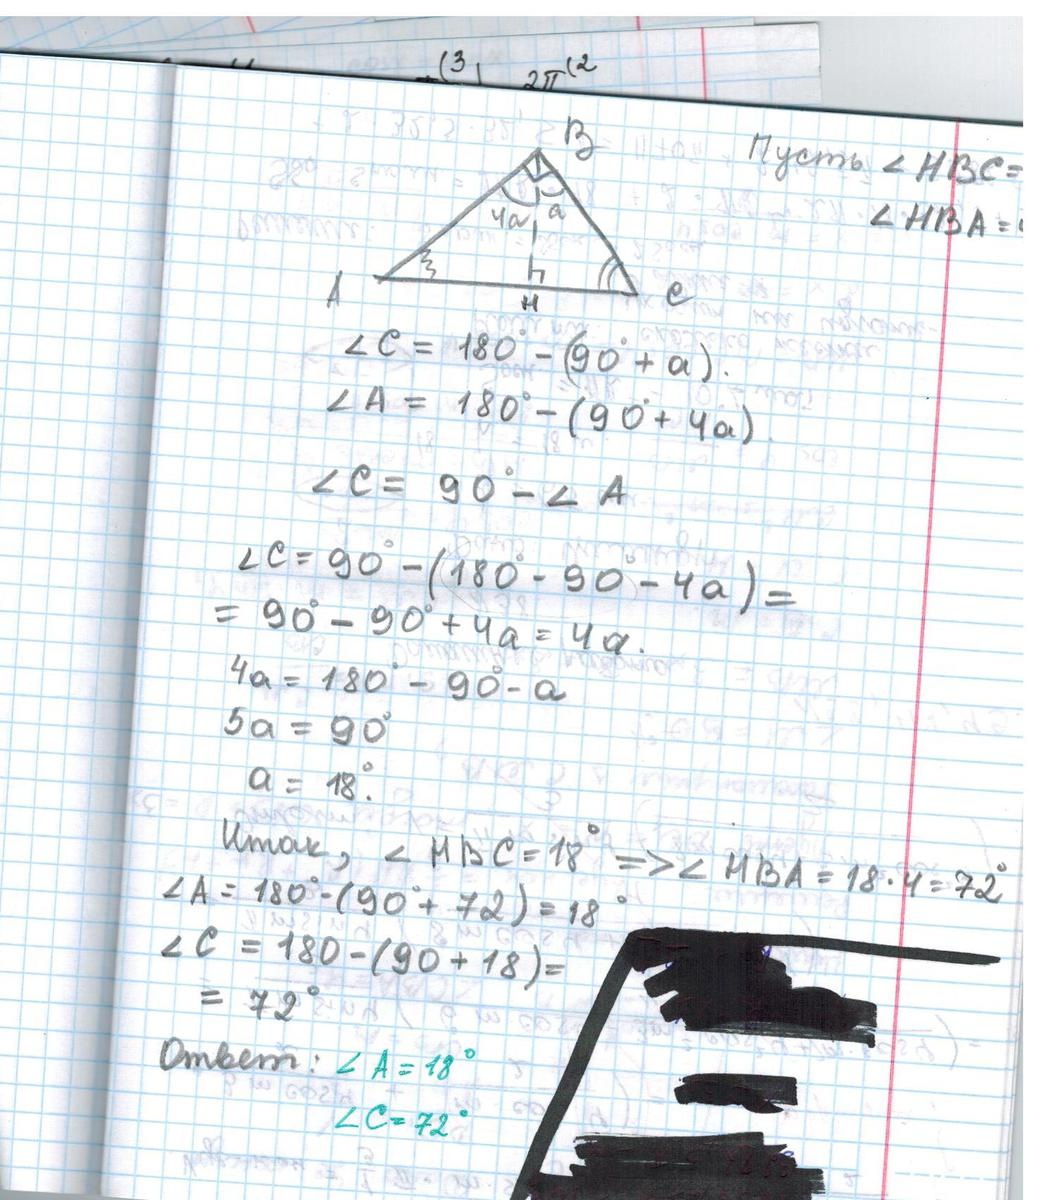 (3
2π(2
B
Пусть ∠HBC=
∠HBA=
4a a
A
H
C
∠C = 180° - (90° + a).
∠A = 180° - (90° + 4a).
∠C = 90° - ∠A
∠C = 90° - (180° - 90° - 4a) =
= 90° - 90° + 4a = 4a.
4a = 180° - 90° - a
5a = 90°
a = 18°.
Итак, ∠HBC = 18° => ∠HBA = 18·4 = 72°
∠A = 180° - (90° + 72) = 18°
∠C = 180 - (90 + 18) =
= 72°
Ответ: ∠A = 18°
∠C = 72°